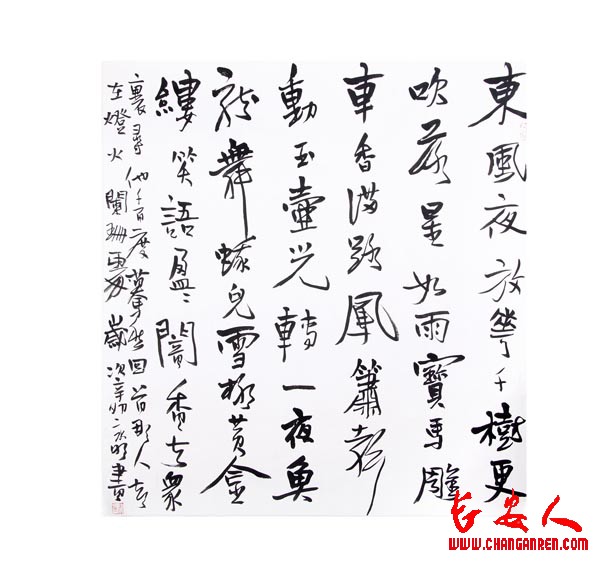 東風夜放華千樹更
吹落星如雨寶馬雕
車香滿路鳳簫聲
動玉壺光轉一夜魚
龍舞蛾兒雪柳黃金
縷笑語盈〻闇香去衆
裏尋他千百度驀然回首那人去
在燈火闌珊處歲次辛卯書
长安人
WWW.CHANGANREN.COM